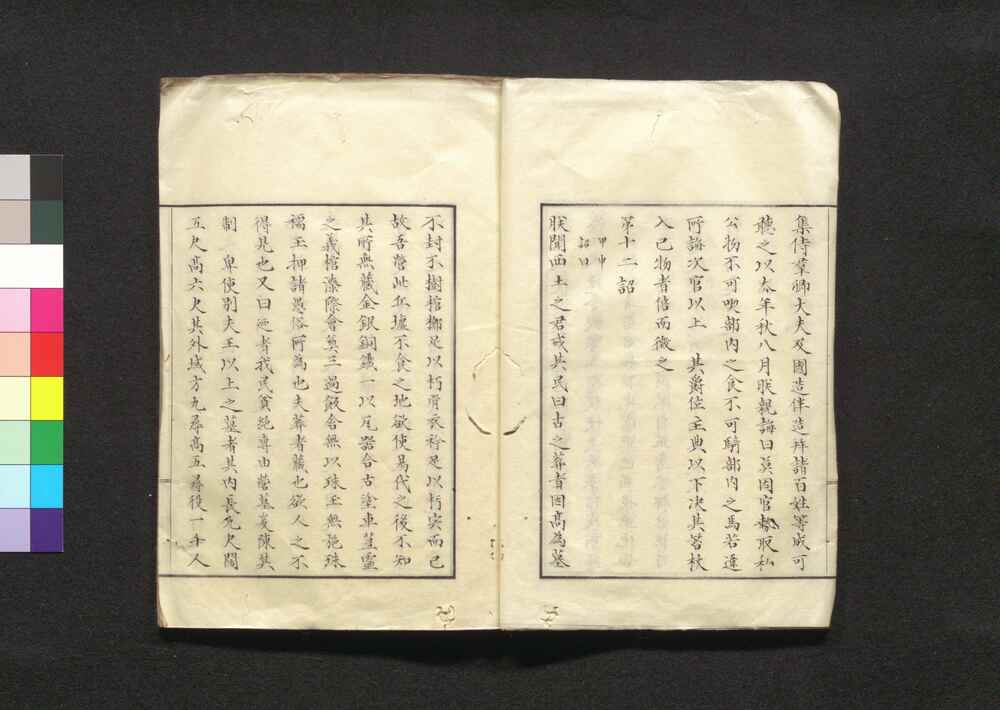 集侍羣卿大夫及國造伴造并諸百姓等咸可
聽之以去年秋八月朕親誨曰莫因官勢取私
公物不可喫部内之食不可騎部内之馬若違
所誨次官以上 其爵位主典以下决其笞杖
入已物者倍而徴之
第十二詔
甲申
詔曰
朕聞西土之君戒其民曰古之葬者因高為墓
不封不樹棺槨足以朽骨衣衿足以朽宍而已
故吾營此丘墟不食之地欲使易代之後不知
其所無藏金銀銅鐵一以瓦器合古塗車蒭靈
之義棺漆際會奠三過飯含無以珠玉無施珠
襦玉押諸愚俗所為也夫葬者藏也欲人之不
得見也又曰廼者我民貧絶專由營墓爰陳其
制 卑使別夫王以上之墓者其内長九尺濶
五尺高六尺其外域方九尋高五尋役一千人